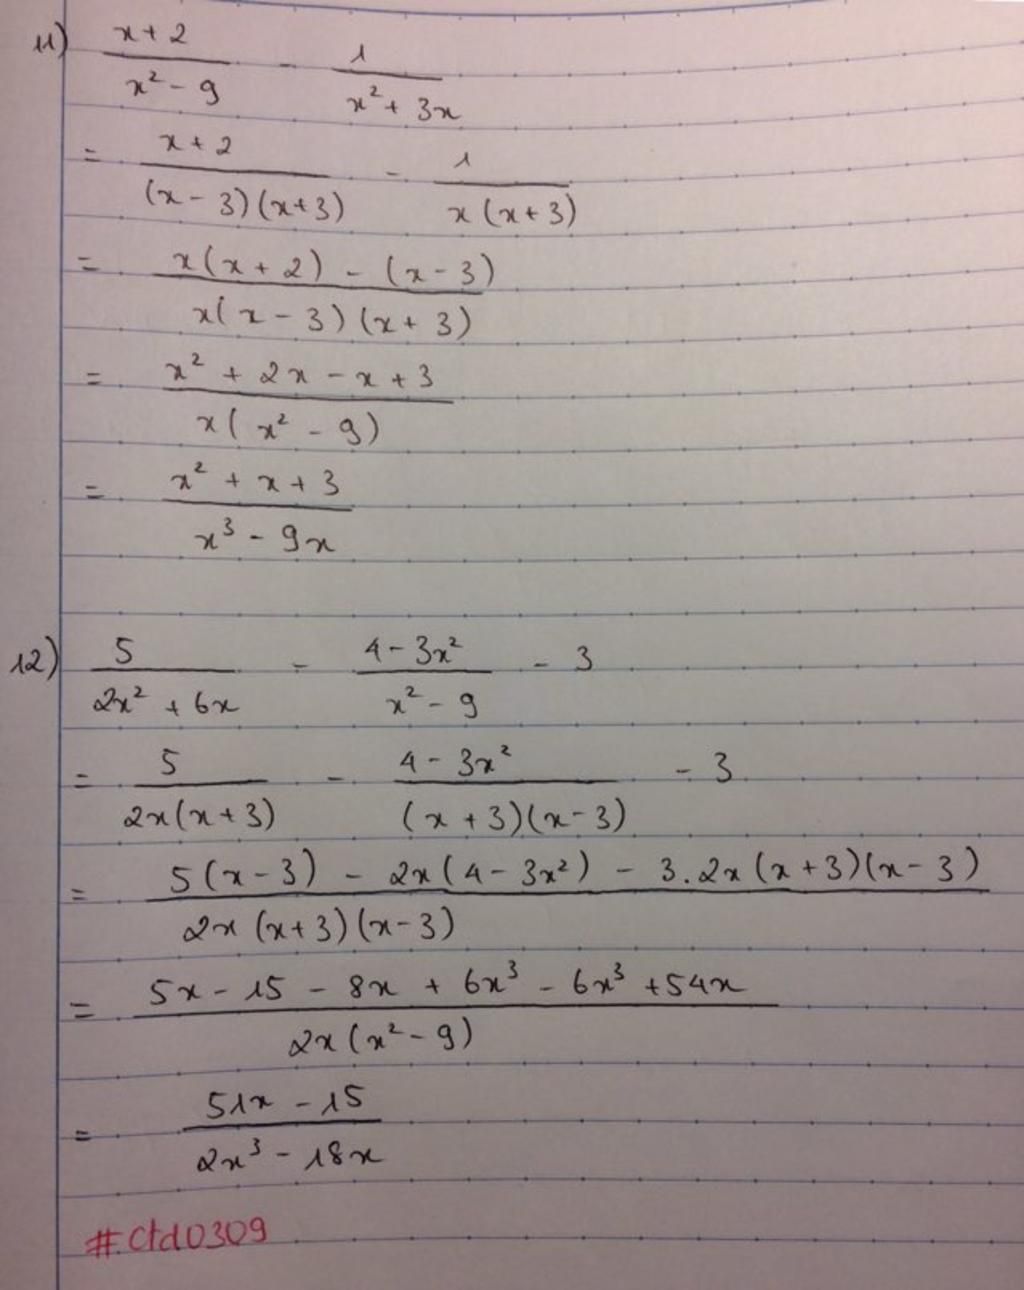 11) x+2 / x² - 9 - 1 / x² + 3x
= x+2 / (x - 3)(x+3) - 1 / x(x+3)
= x(x+2) - (x-3) / x(x-3)(x+3)
= x² + 2x - x + 3 / x(x² - 9)
= x² + x + 3 / x³ - 9x
12) 5 / 2x² + 6x - 4 - 3x² / x² - 9 - 3
= 5 / 2x(x+3) - 4 - 3x² / (x+3)(x-3) - 3
= 5(x-3) - 2x(4 - 3x²) - 3.2x(x+3)(x-3) / 2x(x+3)(x-3)
= 5x - 15 - 8x + 6x³ - 6x³ + 54x / 2x(x² - 9)
= 51x - 15 / 2x³ - 18x
#Ctd0309